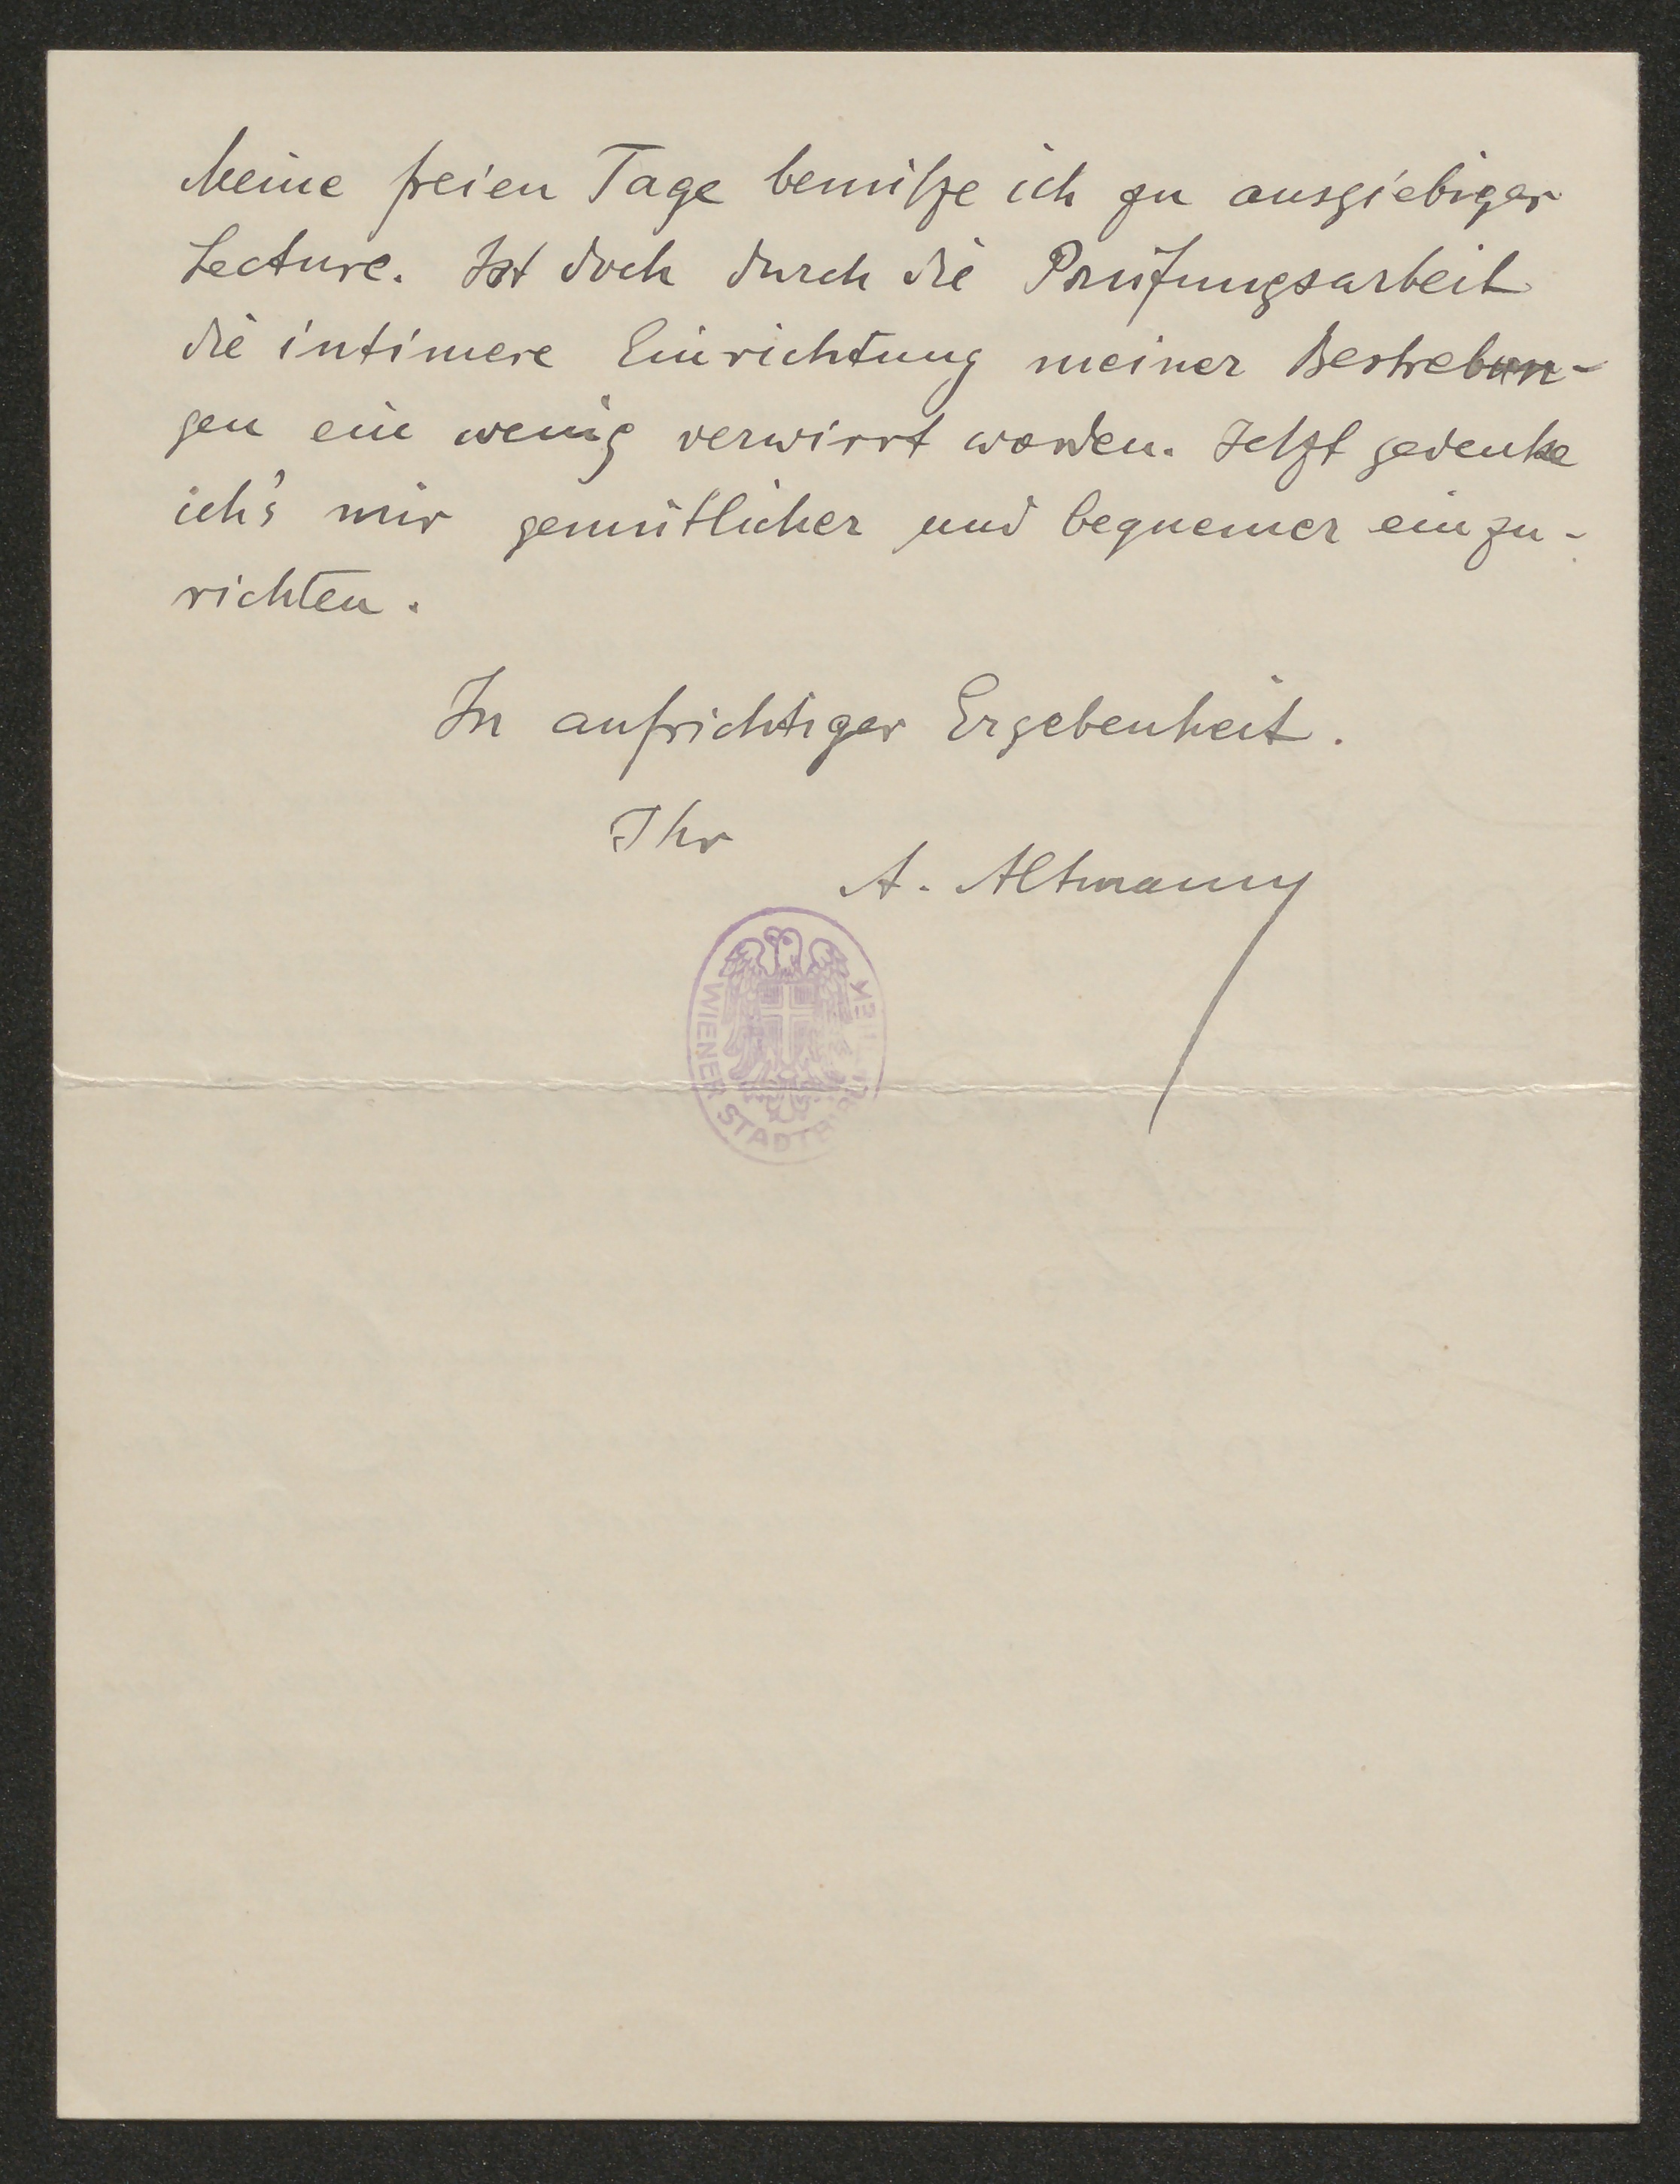 Meine freien Tage benütze ich zu ausgiebiger
Lecture. Ist doch durch die Prüfungsarbeit
die intimere Einrichtung meiner Bestrebun-
gen ein wenig verwirrt worden. Jetzt gedenke
ich's mir gemütlicher und bequemer einzu-
richten.
In aufrichtiger Ergebenheit.
Ihr
A. Altmann
WIENER STADTB